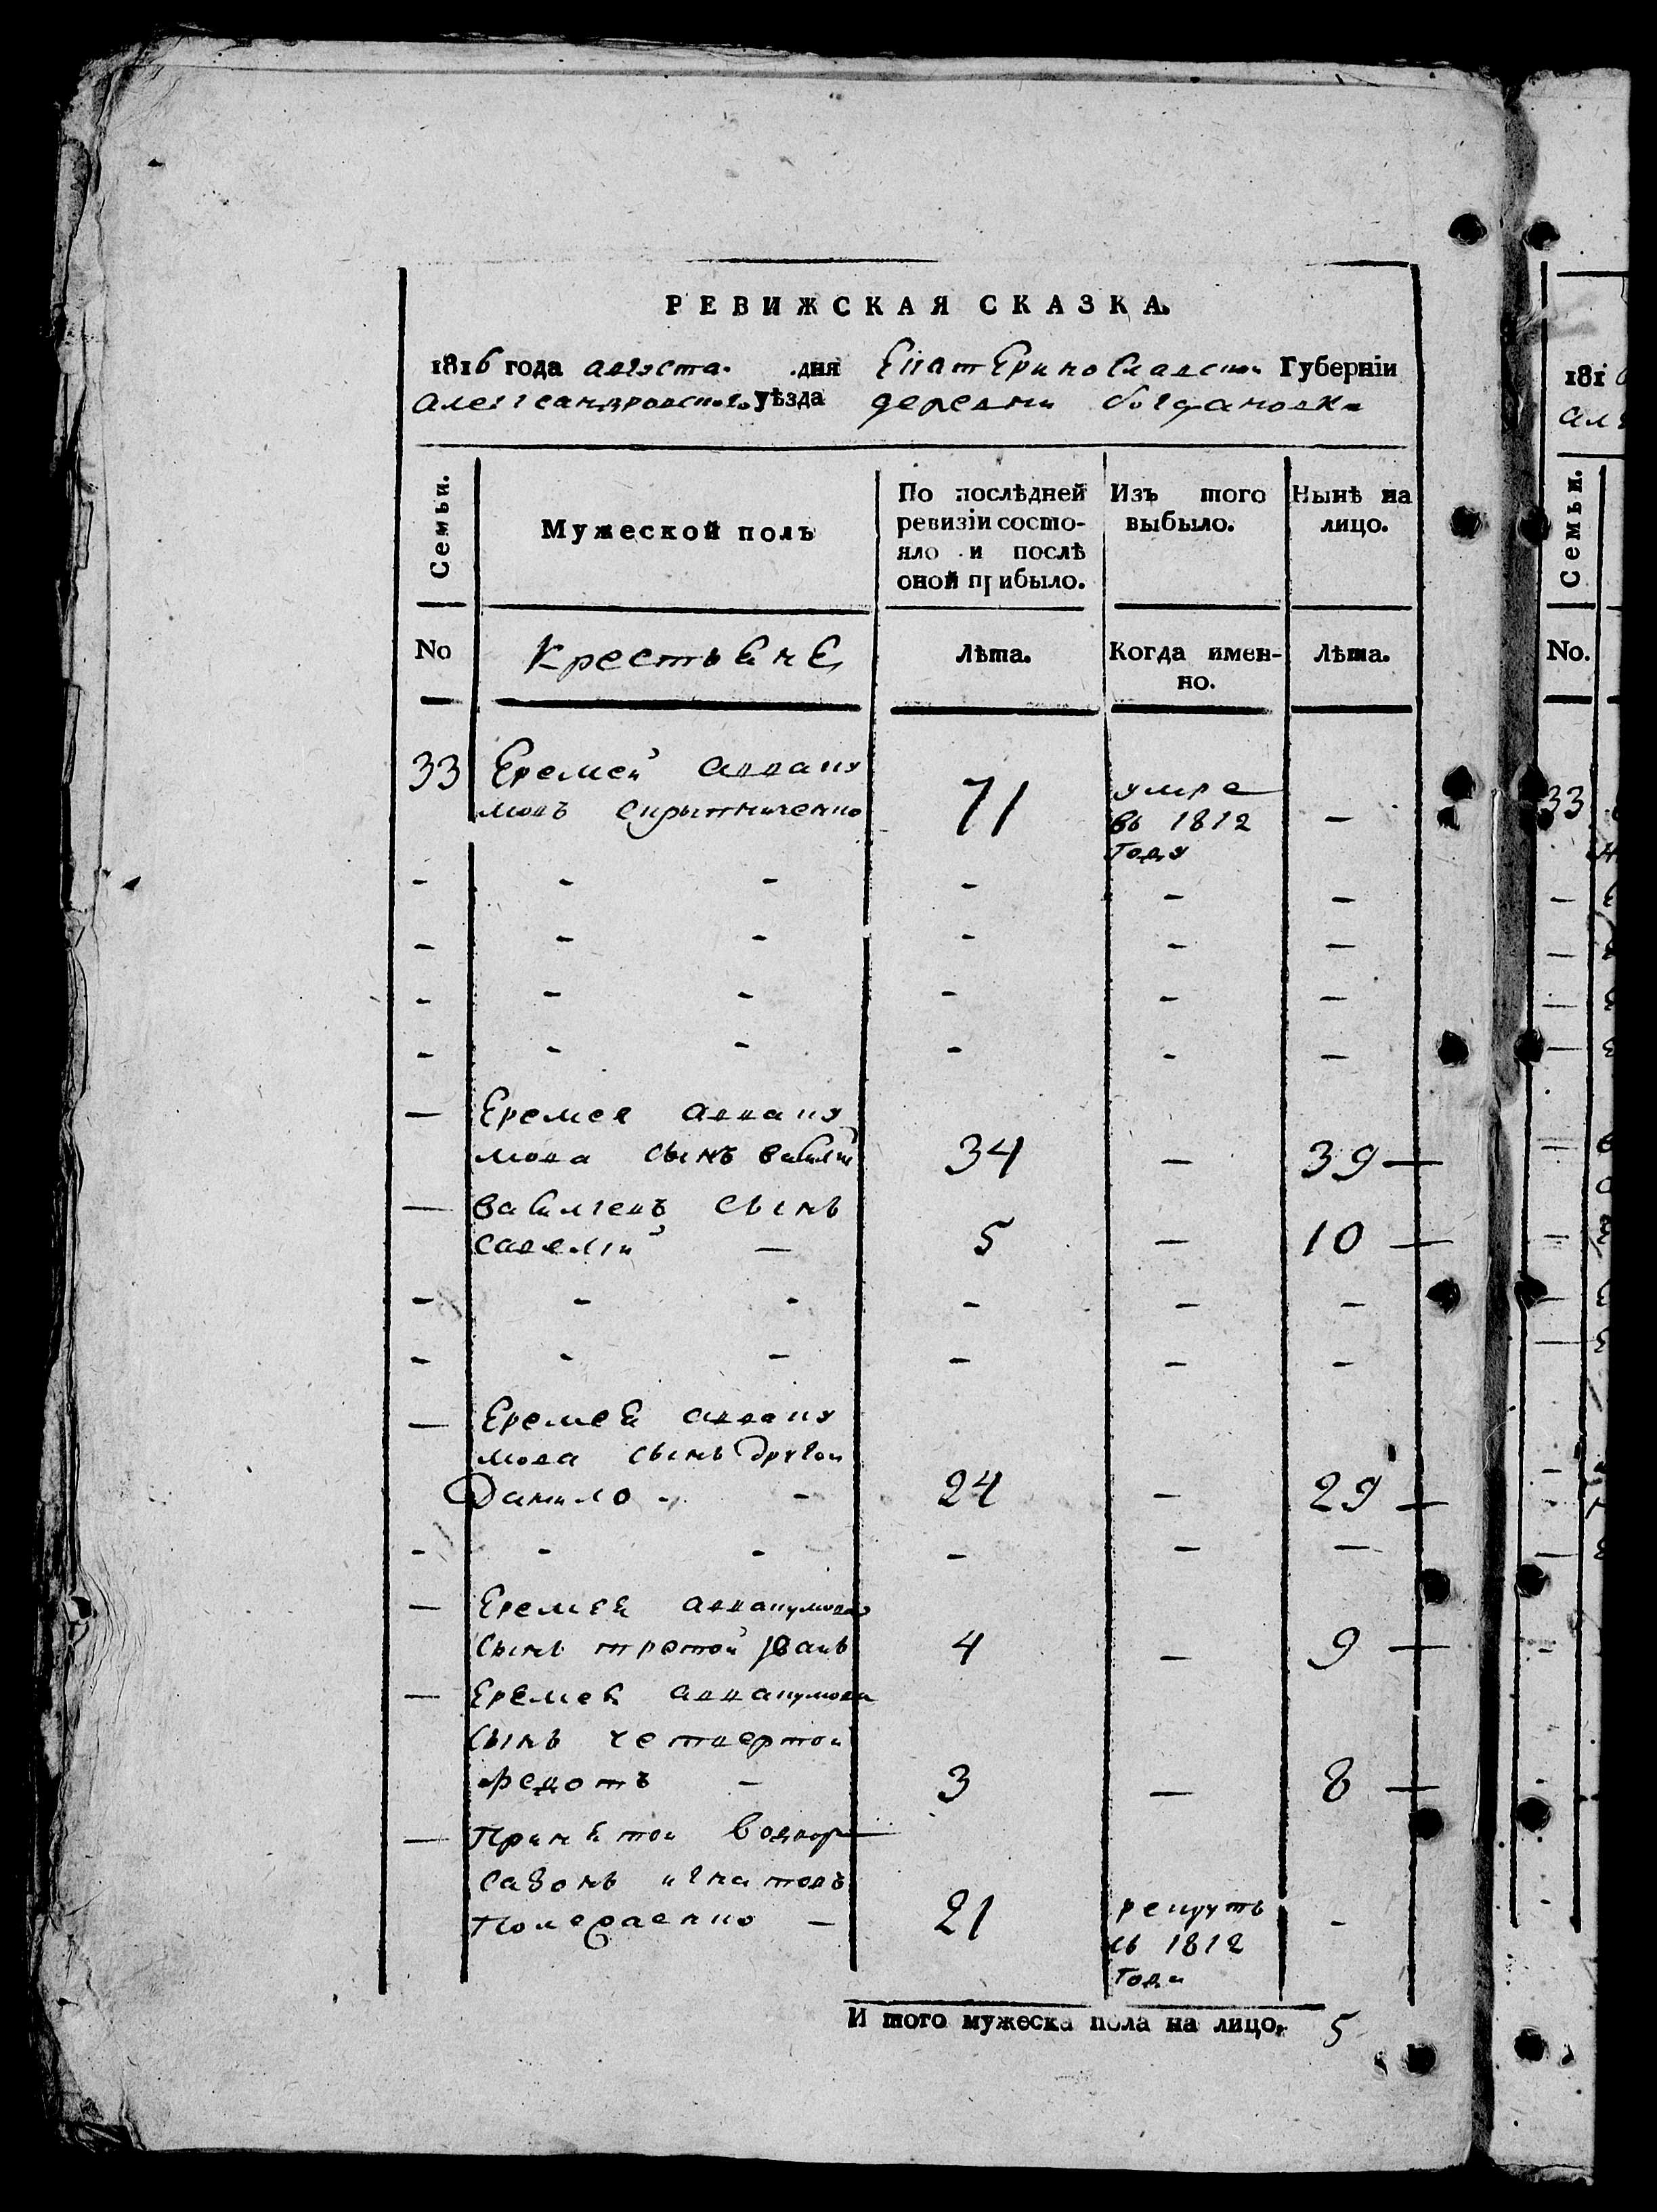 РЕВИЖСКАЯ СКАЗКА.
1816 года августа дня Екатеринославской Губерніи
Александровского уѣзда деревни богдановки
Семьи.
Мужеской полъ
По послѣдней ревизіи состо-
яло и послѣ
оной прибыло.
Изъ того
выбыло.
Нынѣ на
лицо.
No
Крестьяне
лѣта.
Когда имен-
но.
Лѣта.
33 Еремей Авваку
мовъ скрыпниченко 71 умре
въ 1812
году —
- - - - - -
- - - - - -
- - - - - -
- - - - - -
— Еремея Авваку
мова сынъ василій 34 — 39 —
— василіевъ сынъ
савелій — 5 — 10 —
- - - - - -
- - - - - -
— Еремея Авваку
мова сынъ другой
Данило - - 24 — 29 —
- - - - - -
— Еремея Аввакумова
сынъ третой 4 — 9 —
— Еремея Аввакумова
сынъ четвертой
федотъ — 3 — 8 —
— Принятой
сазонъ игнатовъ
— 21 рекрутъ
въ 1812
года -
И того мужеска пола на лицо. 5
181
Семьи.
No.
33